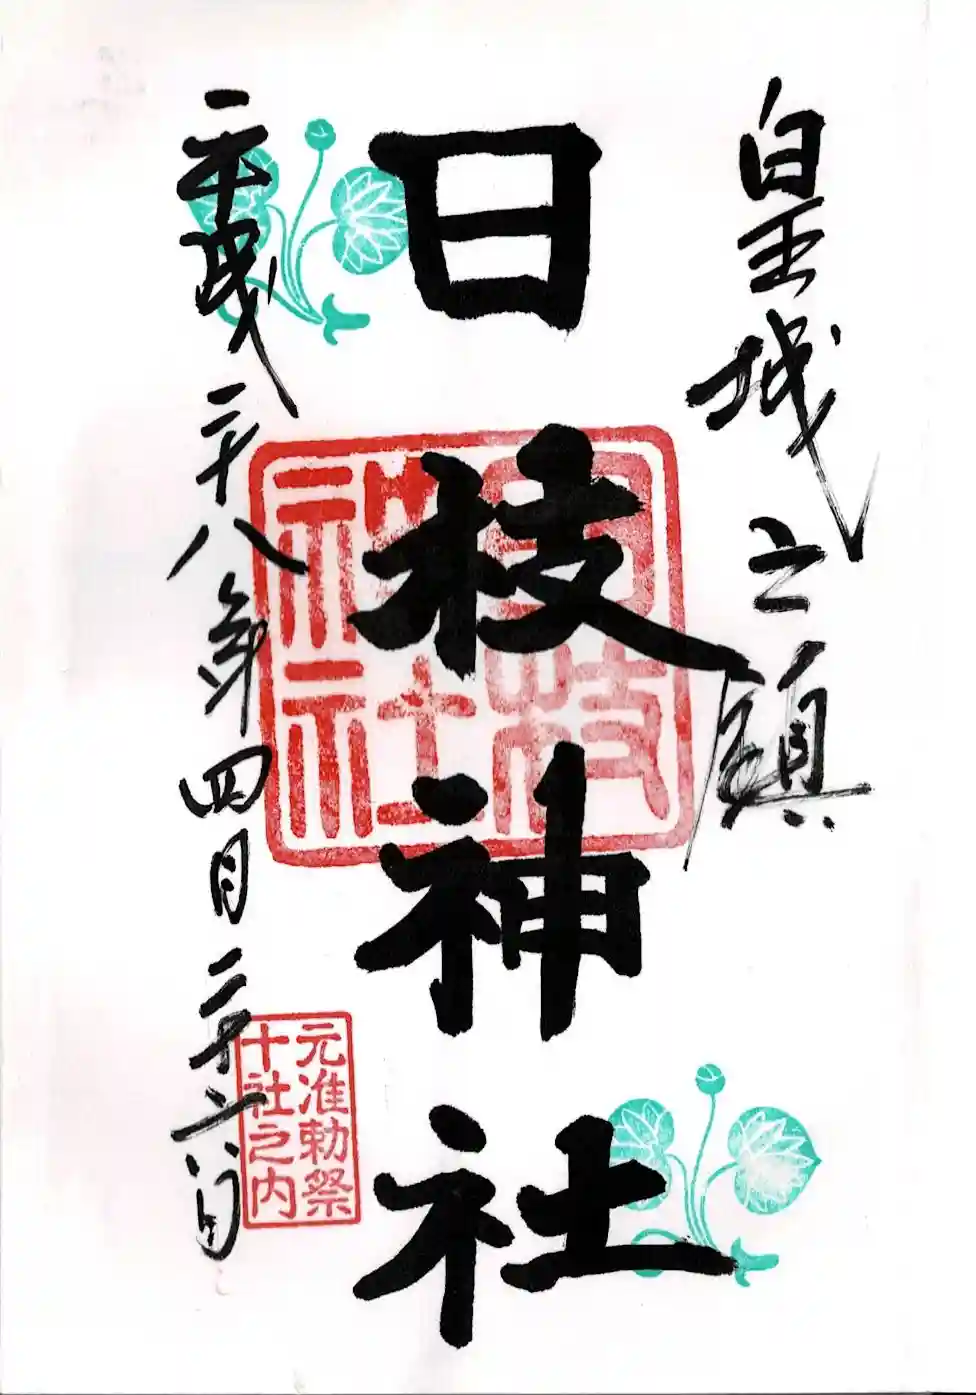 皇城之鎮
日枝神社
平成二十八年四月二十六日
日枝
神社
元准勅祭
十社之内